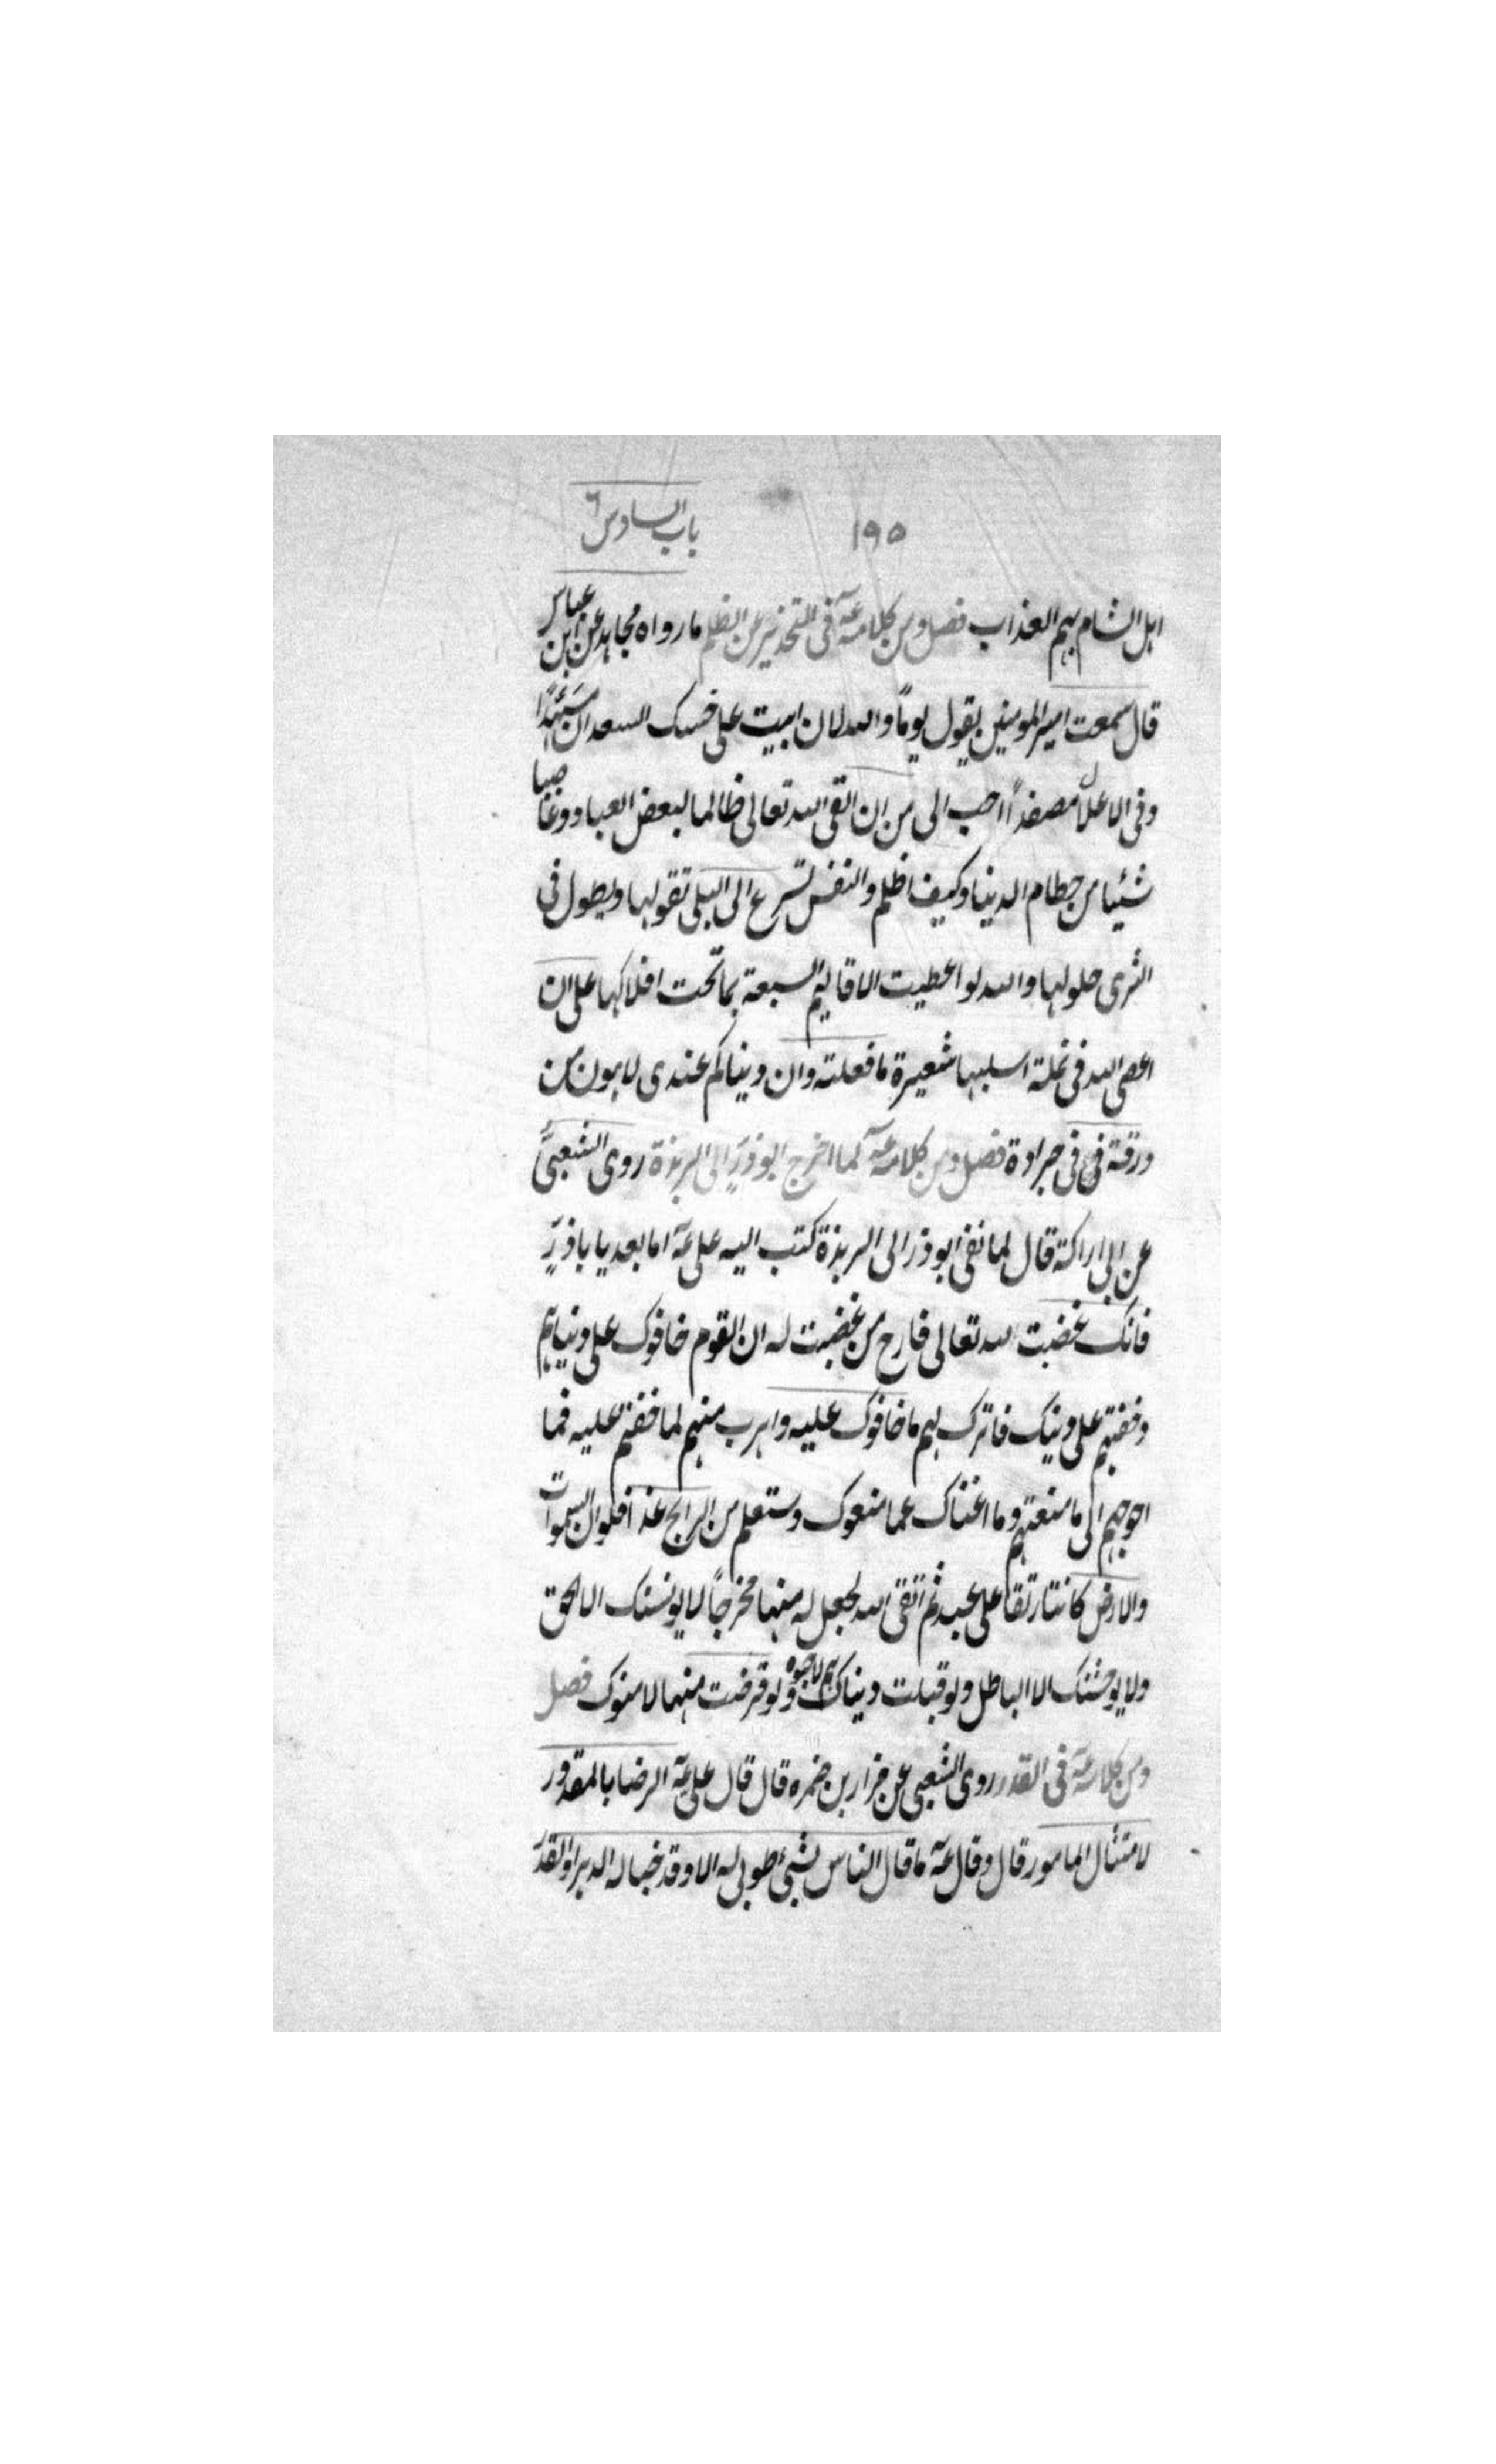 ١٩٥ باب السادس ٦
اهل الشام بهم العذاب فصل ومن كلامه عه فى التحذير عن الظلم ما رواه مجاهد عن ابن عباس
قال سمعت امير المومنين يقول يوماً والله لان ابيت على خسك السعدان مسهّدًا
وفى الاغلال مصفداً احب الى من ان القى الله تعالى ظالما لبعض العباد وغاصبا
شئيا من حطام الدنيا وكيف اظلم والنفس تسرع الى البلى تقولها ويطول فى
الثرى حلولها والله لو اعطيت الاقاليم السبعة بما تحت افلاكها على ان
اعصى الله فى نملة اسلبها شعيرة ما فعلته وان دنياكم عندى لاهون من
ورقة فى فى جرادة فصل ومن كلامه عه لما اخرج ابو ذر الى الربذة روى الشعبى
عن ابى اراكة قال لما نفى ابو ذر الى الربذة كتب اليه على عه اما بعد يا باذر
فانك غضبت لله تعالى فارج من غضبت له ان القوم خافوك على دنياهم
وخفتهم على دينك فاترك لهم ما خافوك عليه واهرب منهم لما خفتهم عليه فما
احوجهم الى ما منعتهم وما اغناك عما منعوك وستعلم من الرابح غدا فلو ان السموات
والارض كانتا رتقا على عبد ثم اتقى الله لجعل له منها مخرجاً لا يونسنك الا الحق
ولا يوحشنك الا الباطل ولو قبلت دنياهم لاحبوك ولو قرضت منها لامنوك فصل
ومن كلامه عه فى القدر روى الشعبى عن ضرار بن ضمره قال قال على عه الرضا بالمقدور
لامتثال المامور قال وقال عه ما قال الناس لشيئ طوبى له الا وقد خبا له الدهر اولقد